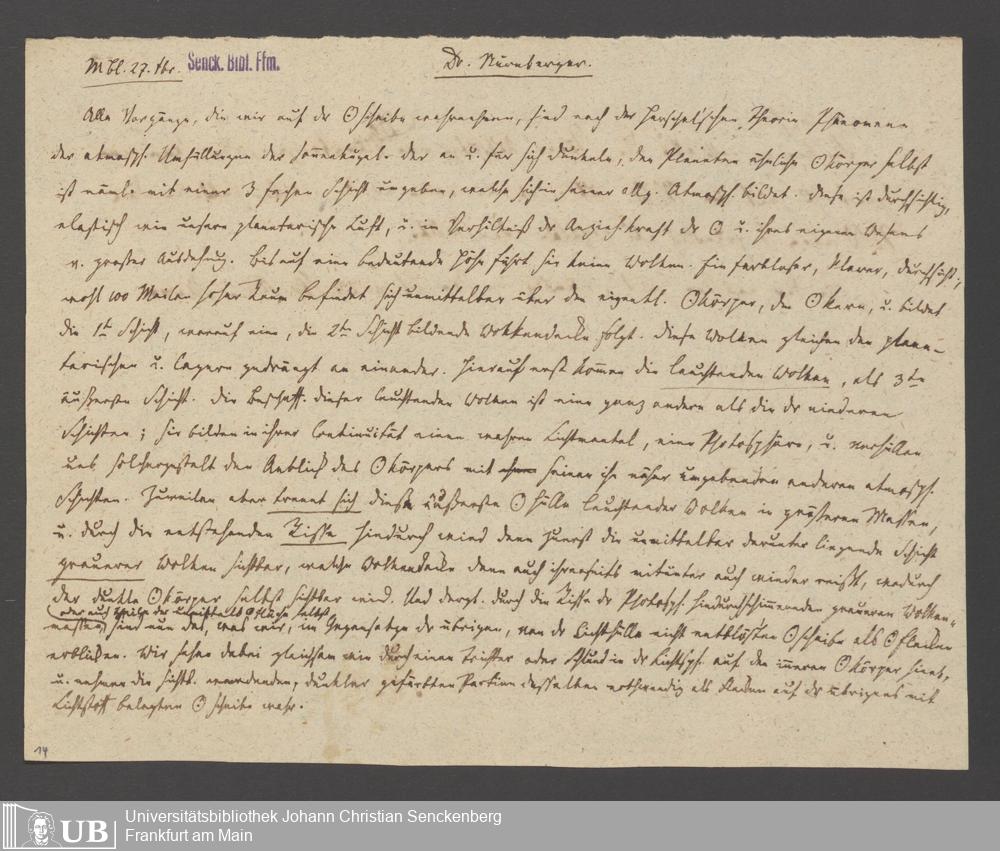 MBl. 27. Abr. Senck. Bibl. Ffm. Dr. Nürnberger.
Alle Vorgänge, die wir auf der ☉scheibe wahrnehmen, sind nach der Herschel'schen Theorie Phänomene
der atmosph. Umhüllungen der Sonnenkugel. Der an u. für sich dunkele, den Planeten ähnliche ☉körper selbst
ist näml. mit einer 3 fachen Schicht umgeben, welche sich in seiner allg. Atmosph. bildet. Diese ist durchsichtig,
elastisch wie unsere planetarische Luft, u. im Verhältniß der Anzieh.kraft der ☉ u. ihres eigenen Wesens
v. großer Ausdehnug. Bis auf eine bedeutende Höhe führt sie keine Wolken. Ein farbloser, klarer, durchsicht.,
wohl 100 Meilen hoher Raum befindet sich unmittelbar über dem eigentl. ☉körper, dem ☉kern, u. bildet
die 1te Schicht, worauf eine, die 2te Schicht bildende Wolkendecke folgt. Diese Wolken gleichen den plane-
tarischen u. lagern gedrängt an einander. Hierauf erst kommen die leuchtenden Wolken, als 3te
äußerste Schicht. Die Beschaff. dieser leuchtenden Wolken ist eine ganz andere als die der niederen
Schichten; sie bilden in ihrer Continuität einen wahren Lichtmantel, eine Photosphäre, u. verhüllen
uns solchergestalt den Anblick des ☉körpers mit seinen ihn näher umgebenden anderen atmosph.
Schichten. Zuweilen aber trennt sich diese äußerste ☉hülle leuchtender Wolken in größeren Massen,
u. durch die entstehenden Risse hindurch wird dann zunächst die unmittelbar darunter liegende Schicht
grauerer Wolken sichtbar, welche Wolkendecke dann auch ihrerseits mitunter auch wieder reißt, wodurch
der dunkle ☉körper selbst sichtbar wird. Und dergl. durch die Risse der Photosph. hindurchschimmernden graueren Wolken-
oder auch Theile der unmittelb. ☉fläche selbst
massen, sind nun das, was wir, im Gegensatze der übrigen, von der Lichthülle nicht entblößten ☉scheibe als ☉flecken
erblicken. Wir sehen dabei gleichsam wie durch einen Trichter oder Schlund in der Lichtsph. auf den inneren ☉körper hinab,
u. nehmen die sichtb. werdenden, dunkler gefärbten Partien desselben nothwendig als Flecken auf der übrigens mit
Lichtstoff belegten ☉scheibe wahr.
14
UB Universitätsbibliothek Johann Christian Senckenberg
Frankfurt am Main